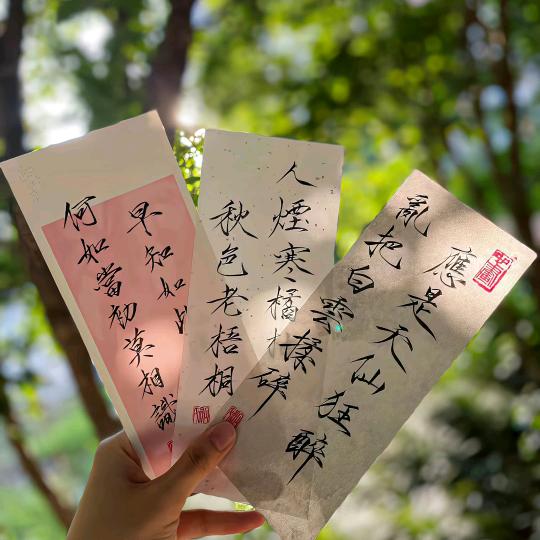 早知如
何如當初莫相識
人煙寒橘
秋色老梧桐
應是天仙狂醉
亂把白雲揉碎